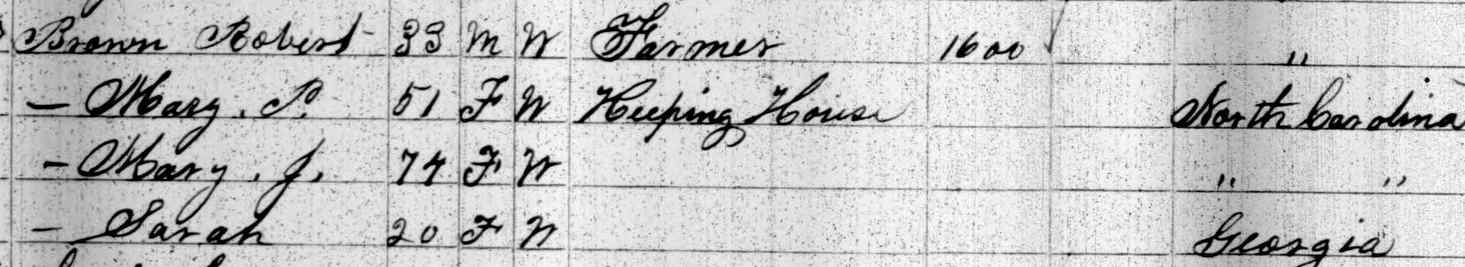 Brown Robert 33 M W Farmer 1600 "
— Mary. P. 51 F W Keeping House North Carolina
— Mary. J. 74 F W " "
— Sarah 20 F W Georgia